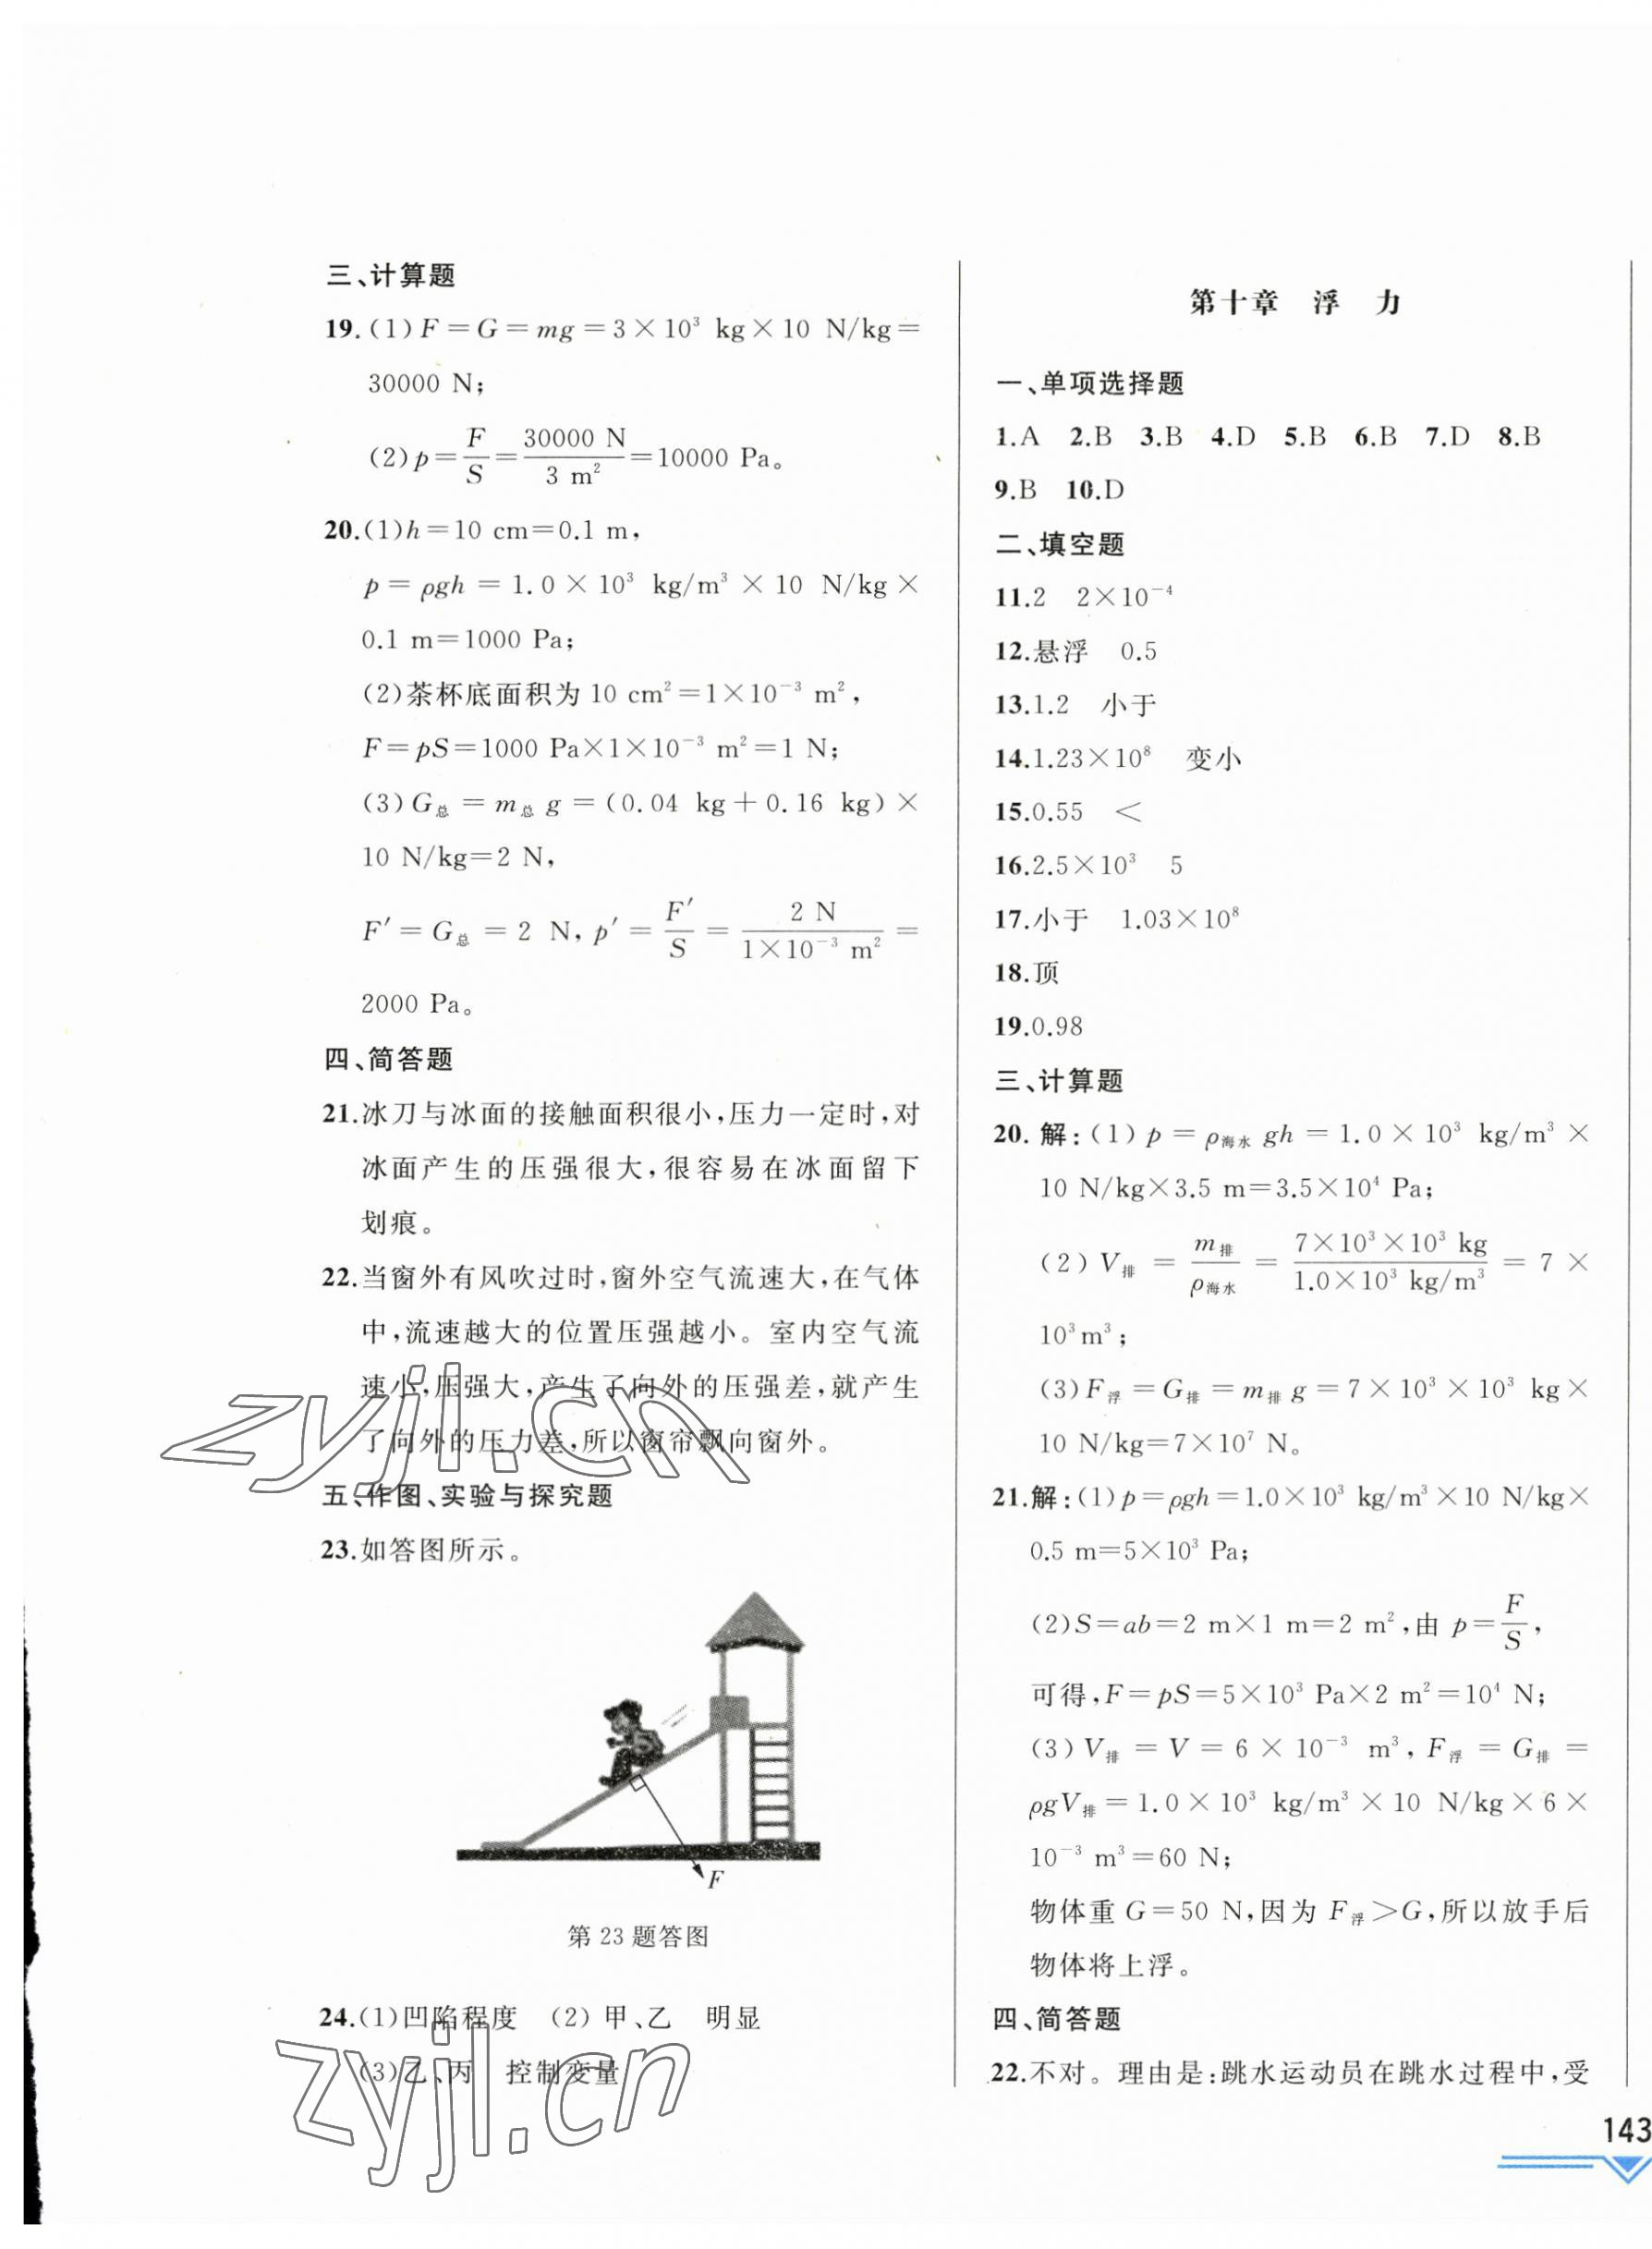 三、计算题
19.(1)F=G=mg=3×10³ kg×10 N/kg=
30000 N;
(2)p=F/S=30000 N/3 m²=10000 Pa。
20.(1)h=10 cm=0.1 m,
p=ρgh=1.0×10³ kg/m³×10 N/kg×
0.1 m=1000 Pa;
(2)茶杯底面积为10 cm²=1×10⁻³ m²,
F=pS=1000 Pa×1×10⁻³ m²=1 N;
(3)G总=m总g=(0.04 kg+0.16 kg)×
10 N/kg=2 N,
F′=G总=2 N,p′=F′/S=2 N/1×10⁻³ m²=
2000 Pa。
四、简答题
21.冰刀与冰面的接触面积很小,压力一定时,对
冰面产生的压强很大,很容易在冰面留下
划痕。
22.当窗外有风吹过时,窗外空气流速大,在气体
中,流速越大的位置压强越小。室内空气流
速小,压强大,产生了向外的压强差,就产生
了向外的压力差,所以窗帘飘向窗外。
五、作图、实验与探究题
23.如答图所示。
F
第23题答图
24.(1)凹陷程度 (2)甲、乙 明显
(3)乙、丙 控制变量
zyjl.cn
zyjl.cn
第十章 浮 力
一、单项选择题
1.A 2.B 3.B 4.D 5.B 6.B 7.D 8.B
9.B 10.D
二、填空题
11.2 2×10⁻⁴
12.悬浮 0.5
13.1.2 小于
14.1.23×10⁸ 变小
15.0.55 <
16.2.5×10³ 5
17.小于 1.03×10⁸
18.顶
19.0.98
三、计算题
20.解:(1)p=ρ海水gh=1.0×10³ kg/m³×
10 N/kg×3.5 m=3.5×10⁴ Pa;
(2)V排=m排/ρ海水=7×10³×10³ kg/1.0×10³ kg/m³=7×
10³m³;
(3)F浮=G排=m排g=7×10³×10³ kg×
10 N/kg=7×10⁷ N。
21.解:(1)p=ρgh=1.0×10³ kg/m³×10 N/kg×
0.5 m=5×10³ Pa;
(2)S=ab=2 m×1 m=2 m²,由p=F/S,
可得,F=pS=5×10³ Pa×2 m²=10⁴ N;
(3)V排=V=6×10⁻³ m³,F浮=G排=
ρgV排=1.0×10³ kg/m³×10 N/kg×6×
10⁻³ m³=60 N;
物体重G=50 N,因为F浮>G,所以放手后
物体将上浮。
四、简答题
22.不对。理由是:跳水运动员在跳水过程中,受
143